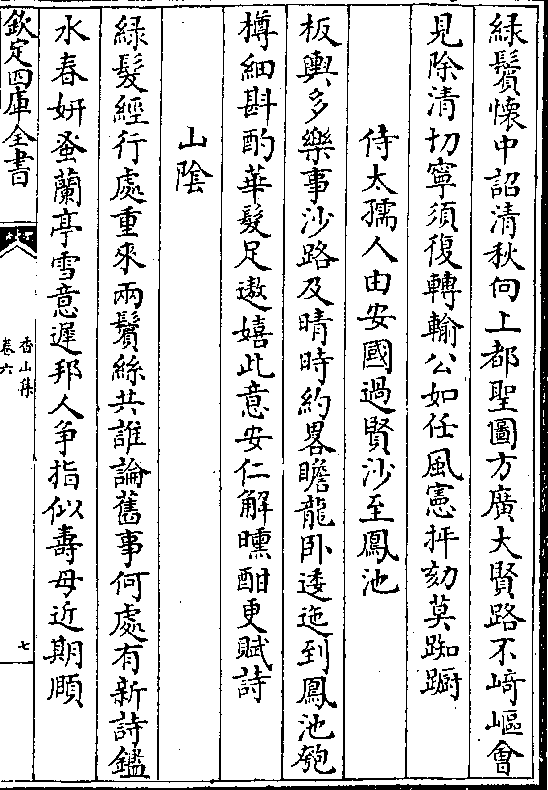 綠鬢懷中詔清秋向上都聖圖方廣大賢路不﨑嶇會
見除清切寧須復轉輸公如任風憲抨劾莫踟躕
侍太孺人由安國過賢沙至鳳池
板輿多樂事沙路及晴時約畧瞻龍卧逶迤到鳳池匏
樽細斟酌華髮足遨嬉此意安仁解曛酣更賦詩
山隂
綠髮經行處重來兩鬢絲共誰論舊事何處有新詩鑑
水春妍蚤蘭亭雪意遲邦人争指似壽母近期頤
欽定四庫全書
香山集
卷六
七